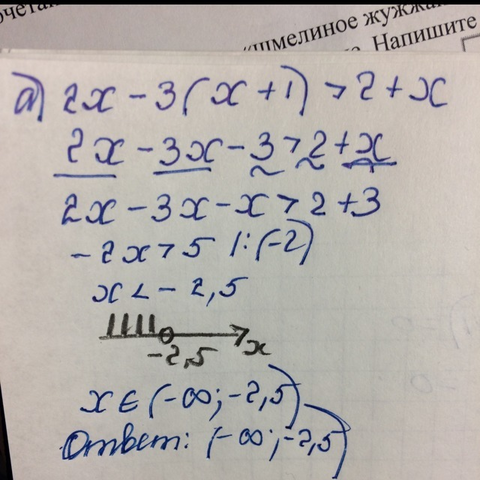 очета
"шмелиное жужжа
Напишите
а) 2x - 3(x + 1) > 2 + x
2x - 3x - 3 > 2 + x
2x - 3x - x > 2 + 3
- 2x > 5 |:(-2)
x < - 2,5
-2,5 x
x ∈ (-∞; -2,5)
Ответ: (-∞; -2,5)